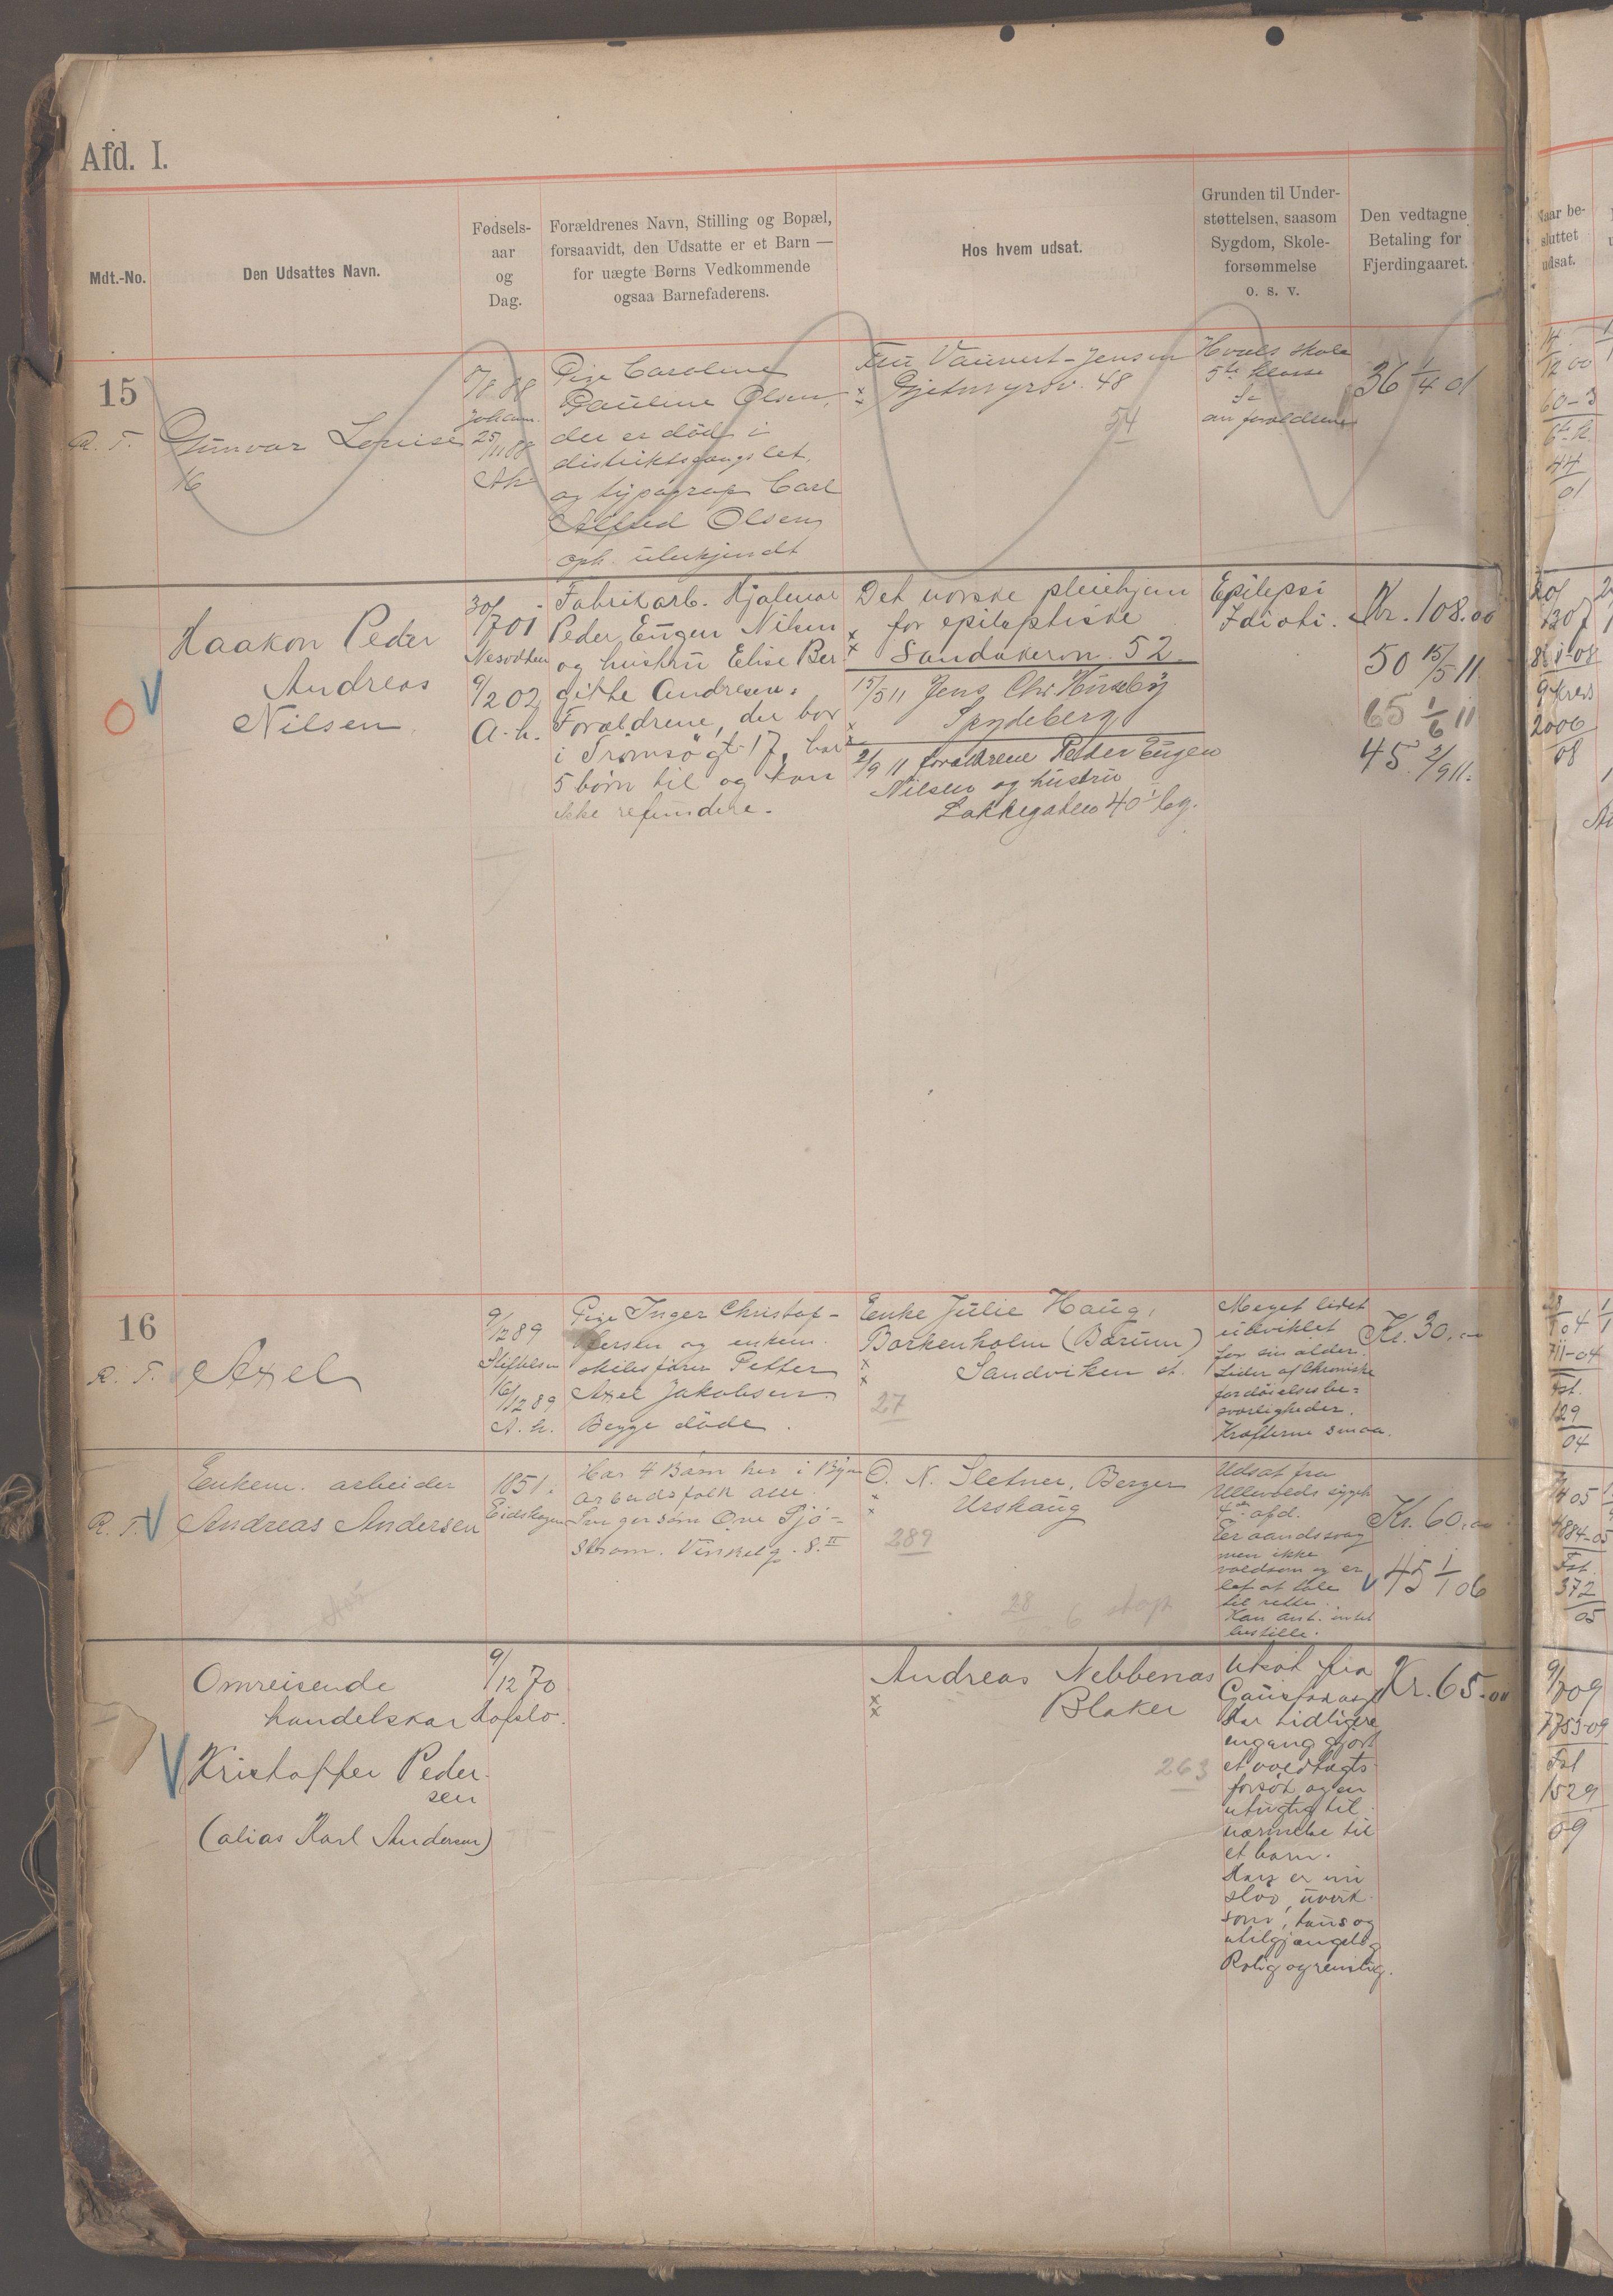 Afd. I.
Mdt.-No.
Den Udsattes Navn.
Fødsels-
aar
og
Dag.
Forældrenes Navn, Stilling og Bopæl,
forsaavidt, den Udsatte er et Barn —
for uægte Børns Vedkommende
ogsaa Barnefaderens.
Hos hvem udsat.
Grunden til Under-
støttelsen, saasom
Sygdom, Skole-
forsømmelse
o. s. v.
Den vedtagne
Betaling for
Fjerdingaaret.
15
R. T.
Gunvor Lovise
16
88
Johann.
25/11 88
Ak
Pige Caroline
Pauline Olsen,
der er död i
distriktsfængslet,
og typograf Carl
Alfred Olsen,
oph. ubekjendt
Fru Vauvert-Jensen
Gjetmyrsv. 48
54
Hvals skole
5te klasse
av forældrene
36 1/4 01
Haakon Peder
Andreas
Nilsen
30/7 01
Nesodden
9/2 02
A. h.
Fabrikarb. Hjalmar
Peder Eugen Nilsen
og hustru Elise Ber
githe Andresen.
Forældrene, der bor
i Tromsögt 17, har
5 börn til og kan
ikke refundere.
Det norske pleiehjem
for epileptiske
Sandakerv. 52.
15/5 11 Jens Chr. Huseby
Spydeberg
2/9 11 forældrene Peder Eugen
Nilsen og hustru
Lakkegaten 40 I bg.
Epilepsi
Idioti.
Kr. 108.00
50 15/5 11
65 1/6 11
45 2/9 11.
16
R. T.
Axel
9/12 89
Stiftelsen
16/12 89
A. h.
Pige Inger Christof-
fersen og enkem.
skibsfører Petter
Axel Jakobsen.
Begge døde.
Enke Julie Haug,
Barkenholm (Bærum)
Sandviken st.
27
Meget lidet
udviklet
for sin alder.
Lider af chroniske
fordöielsesbe-
sværligheder.
Kræfterne smaa.
Kr. 30.00
R. T.
Enkem. arbeider
Andreas Andersen
1851.
Eidskogen
Har 4 Børn her i Byen
Arbeidsfolk alle.
Sjö-
ström. Vinkelg. 8.II
O. N. Sletner, Berger
Urskaug
289
28
Udsat fra
Ullevolds sygeh
4de afd.
Er aandssvag
men ikke
voldsom og er
let at tale
til rette.
Kan ant. intet
bestille.
Kr. 60.00
45 1/1 06
Omreisende
handelskar
Kristoffer Peder-
sen
(alias Karl Andersen)
9/12 70
Hofslo.
Andreas Nebbenæs
Blaker
263
Utsat fra
Gaustad asyl
Har tidligere
engang gjort
et voldtægts-
forsök og en
utugtig til-
nærmelse til
et barn.
Han er nu
slöv, uvirk-
som, taus og
utilgjængelig
Rolig og renslig.
Kr. 65.00
Naar be-
sluttet
udsat.